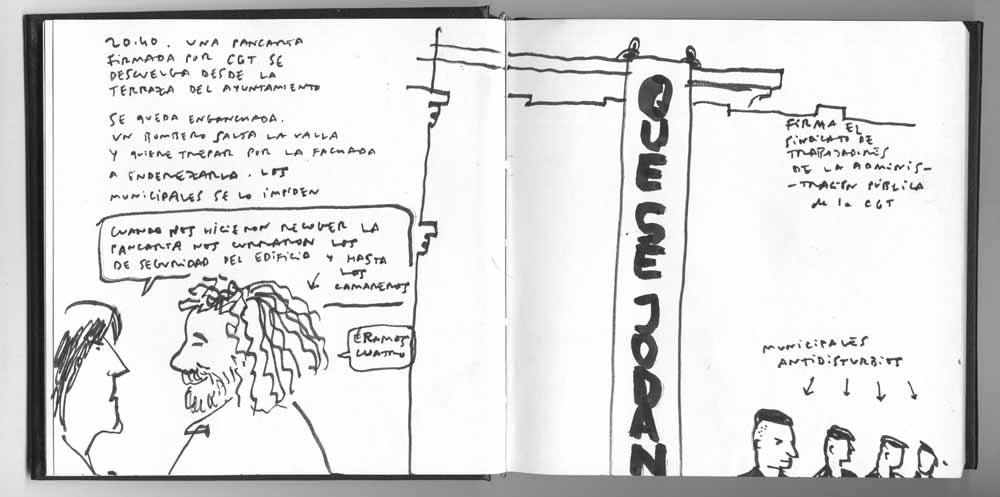 20:40. UNA PANCARTA
FIRMADA POR CGT SE
DESCUELGA DESDE LA
TERRAZA DEL AYUNTAMIENTO
SE QUEDA ENGANCHADA.
UN BOMBERO SALTA LA VALLA
Y QUIERE TREPAR POR LA FACHADA
A ENDEREZARLA. LOS
MUNICIPALES SE LO IMPIDEN
CUANDO NOS HICIERON RECOGER LA
PANCARTA NOS CURRARON LOS
DE SEGURIDAD DEL EDIFICIO Y HASTA
LOS
CAMAREROS
ERAMOS
CUATRO
QUE SE JODAN
FIRMA EL
SINDICATO DE
TRABAJADORES
DE LA ADMINIS-
-TRACIÓN PÚBLICA
de la CGT
MUNICIPALES
ANTIDISTURBIOS